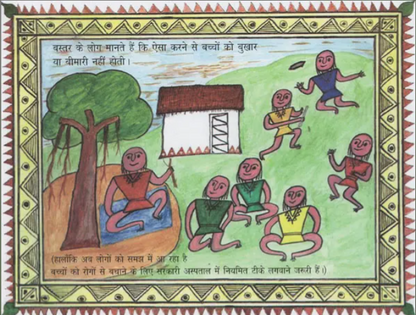 बस्तर के लोग मानते हैं कि ऐसा करने से बच्चों को बुखार
या बीमारी नहीं होती।
(हालाँकि अब लोगों को समझ में आ रहा है
बच्चों को रोगों से बचाने के लिए सरकारी अस्पताल में नियमित टीके लगवाने जरूरी हैं।)